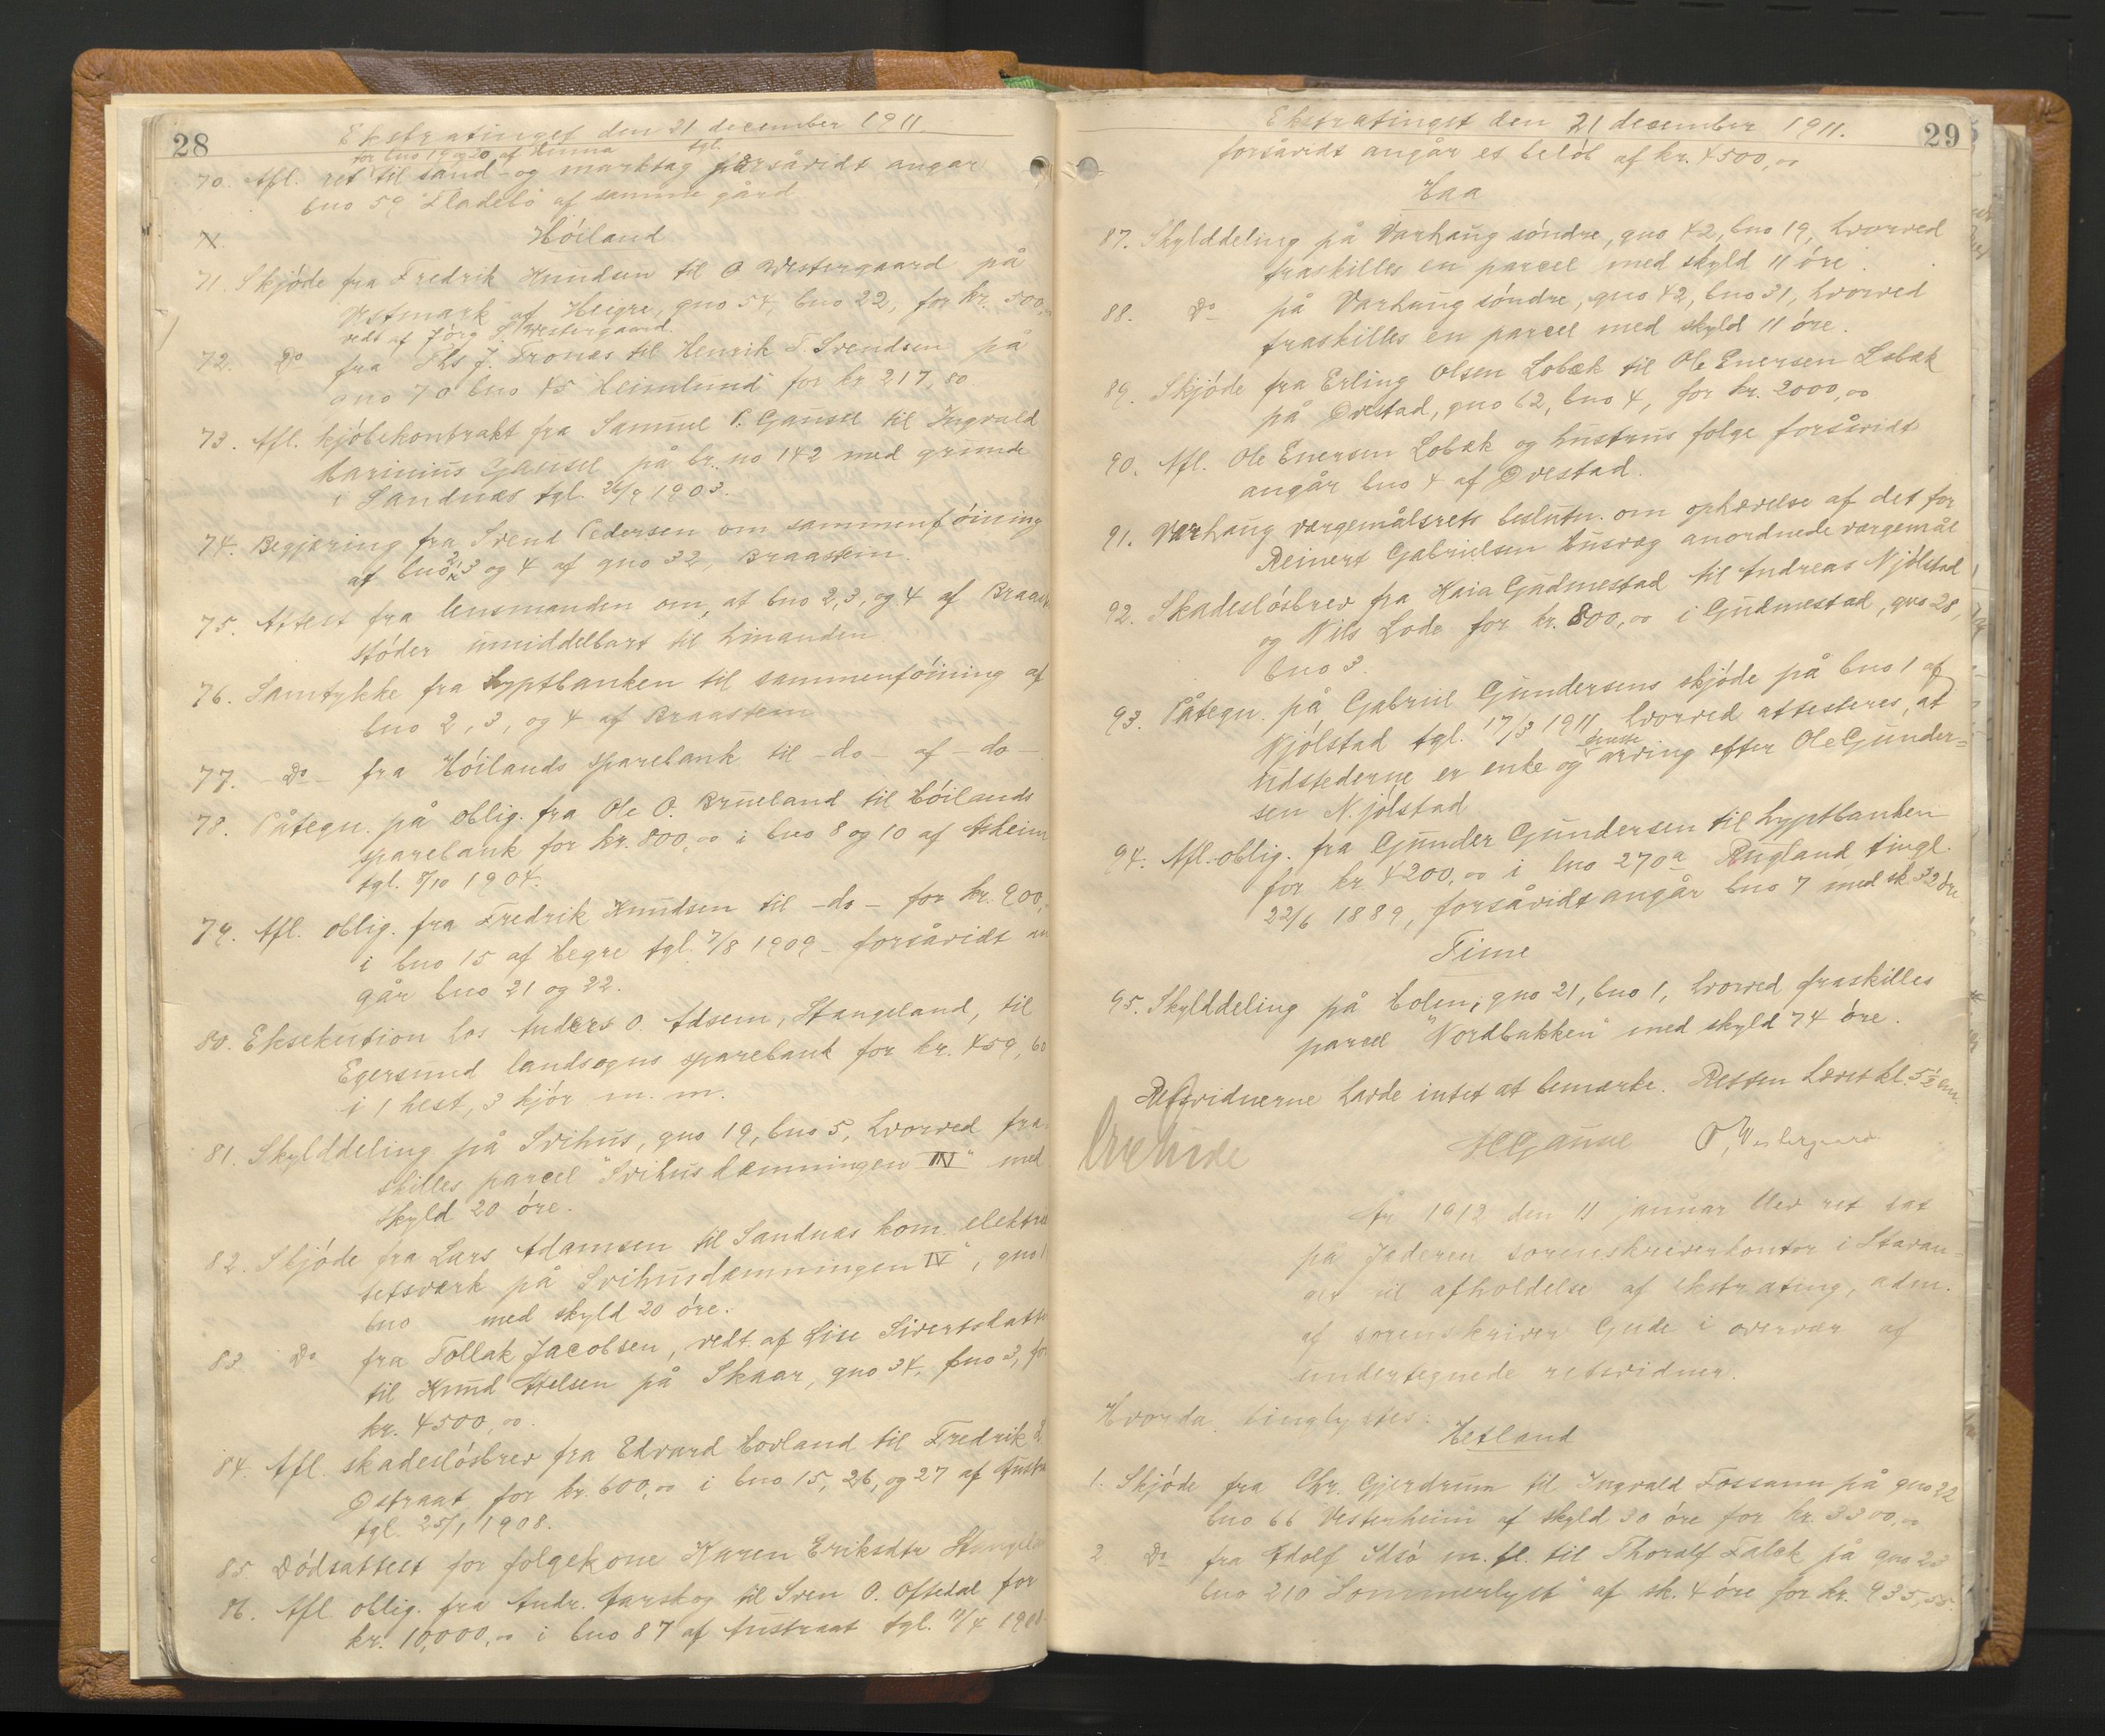 28
Ekstratinget den 21 december 1911
for bno 19 og 20 af Hinna tgl.
70. Afl. ret til sand- og marktag forsåvidt angår
bno 59 Fladebö af samme gård
Höiland
71. Skjöde fra Fredrik Knudsen til O Westergaard på
Vestmark af Heigre, gno 54, bno 22, for kr. 500,
vedt af Jörg S. Westergaard.
72. Do fra Ths J. Trones til Henrik T. Svendsen på
gno 70 bno 45 Heimlund for kr 217,80
73. Afl. kjöbekontrakt fra Samuel P. Gausel til Ingvald
Marinius Gausel på br. no 142 med grund
i Sandnæs tgl. 26/9 1903.
74. Begjæring fra Svend Pedersen om sammenföining
af bno 2, 3 og 4 af gno 32, Braastein.
75. Attest fra lensmanden om, at bno 2, 3, og 4 af Braast
stöder umiddelbart til hinanden
76. Samtykke fra hyptbanken til sammenföining af
bno 2, 3, og 4 af Braastein
77. - Do - fra Höilands sparebank til - do - af - do -
78. Påtegn. på oblig. fra Ole O. Brueland til Höilands
sparebank for kr. 800,00 i bno 8 og 10 af Asheim
tgl. 8/10 1904.
79. Afl. oblig. fra Fredrik Knudsen til - do - for kr. 900,
i bno 15 af Hegre tgl. 7/8 1909 - forsåvidt an
går bno 21 og 22.
80. Eksekution hos Anders O. Adsem, Stangeland, til
Egersund landsogns sparebank for kr. 459,60
i 1 hest, 3 kjör m. m.
81. Skylddeling på Svihus, gno 19, bno 5, hvorved fra
skilles parcel "Svihusdæmningen IV" med
skyld 20 öre.
82. Skjöde fra Lars Adamsen til Sandnæs kom. elektri
tetsværk på Svihusdæmningen IV", gno 1
bno med skyld 20 öre.
83. Do fra Tollak Jacobsen, vedt. af Lise Sivertsdatte
til Knud Attelsen på Skaar, gno 34, bno 3, for
kr. 4500,00.
84. Afl. skadeslösbrev fra Edvard Hovland til Fredrik
Østraat for kr. 600,00 i bno 15, 26, og 27 af Austra
tgl. 25/1 1908.
85. Dödsattest for folgekone Karen Eriksdtr Stangela
86. Afl. oblig. fra Andr. Aarskog til Sven O. Oftedal for
kr. 10,000,00 i bno 87 af Austraat tgl. 11/4 1908
29
Ekstratinget den 21 december 1911.
forsåvidt angår et belöb af kr. 4500,00
Haa
87. Skylddeling på Varhaug söndre, gno 42, bno 19, hvorved
fraskilles en parcel med skyld 11 öre.
88. Do på Varhaug söndre, gno 42, bno 31, hvorved
fraskilles en parcel med skyld 11 öre.
89. Skjöde fra Erling Olsen Lobæk til Ole Enersen Lobæk
på Ovestad, gno 62, bno 4, for kr. 2000,00
90. Afl. Ole Enersen Lobæk og hustrus folge forsåvidt
angår bno 4 af Ovestad.
91. Varhaug værgemålsrets beslutn. om ophævelse af det for
Reinert Gabrielsen Husvæg anordnede værgemål
92. Skadeslösbrev fra Maia Gudmestad til Andreas Njölstad
og Nils Lode for kr. 800,00 i Gudmestad, gno 28,
bno 3.
93. Påtegn. på Gabriel Gundersens skjöde på bno 1 af
Njölstad tgl. 17/3 1911, hvorved attesteres, at
udstederne er enke og eneste arving efter Ole Gunder=
sen Njölstad
94. Afl. oblig. fra Gunder Gundersen til hyptbanken
for kr 4200,00 i lno 270a Rugland tingl.
22/6 1889, forsåvidt angår bno 7 med sk. 32 öre.
Time
95. Skylddeling på Holen, gno 21, bno 1, hvorved fraskilles
parcel "Nordbakken" med skyld 74 öre.
Retsvidnerne havde intet at bemærke. Retten hævet kl. 5 1/2 em.
HGausel O. Westergaard
År 1912 den 11 januar blev ret sat
på Jæderen sorenskriverkontor i Stavan-
ger til afholdelse af ekstrating, adm.
af sorenskriver Gude i overvær af
undertegnede retsvidner.
Hvorda tinglystes:
Hetland
1. Skjöde fra Chr. Gjerdrum til Ingvald Fossann på gno 22
bno 66 Vesterheim af skyld 30 öre for kr. 3300,00
2 Do fra Adolf Idsö m. fl. til Thoralf Falck på gno 23
bno 210 "Sommerlyst" af sk. 4 öre for kr. 935,55.